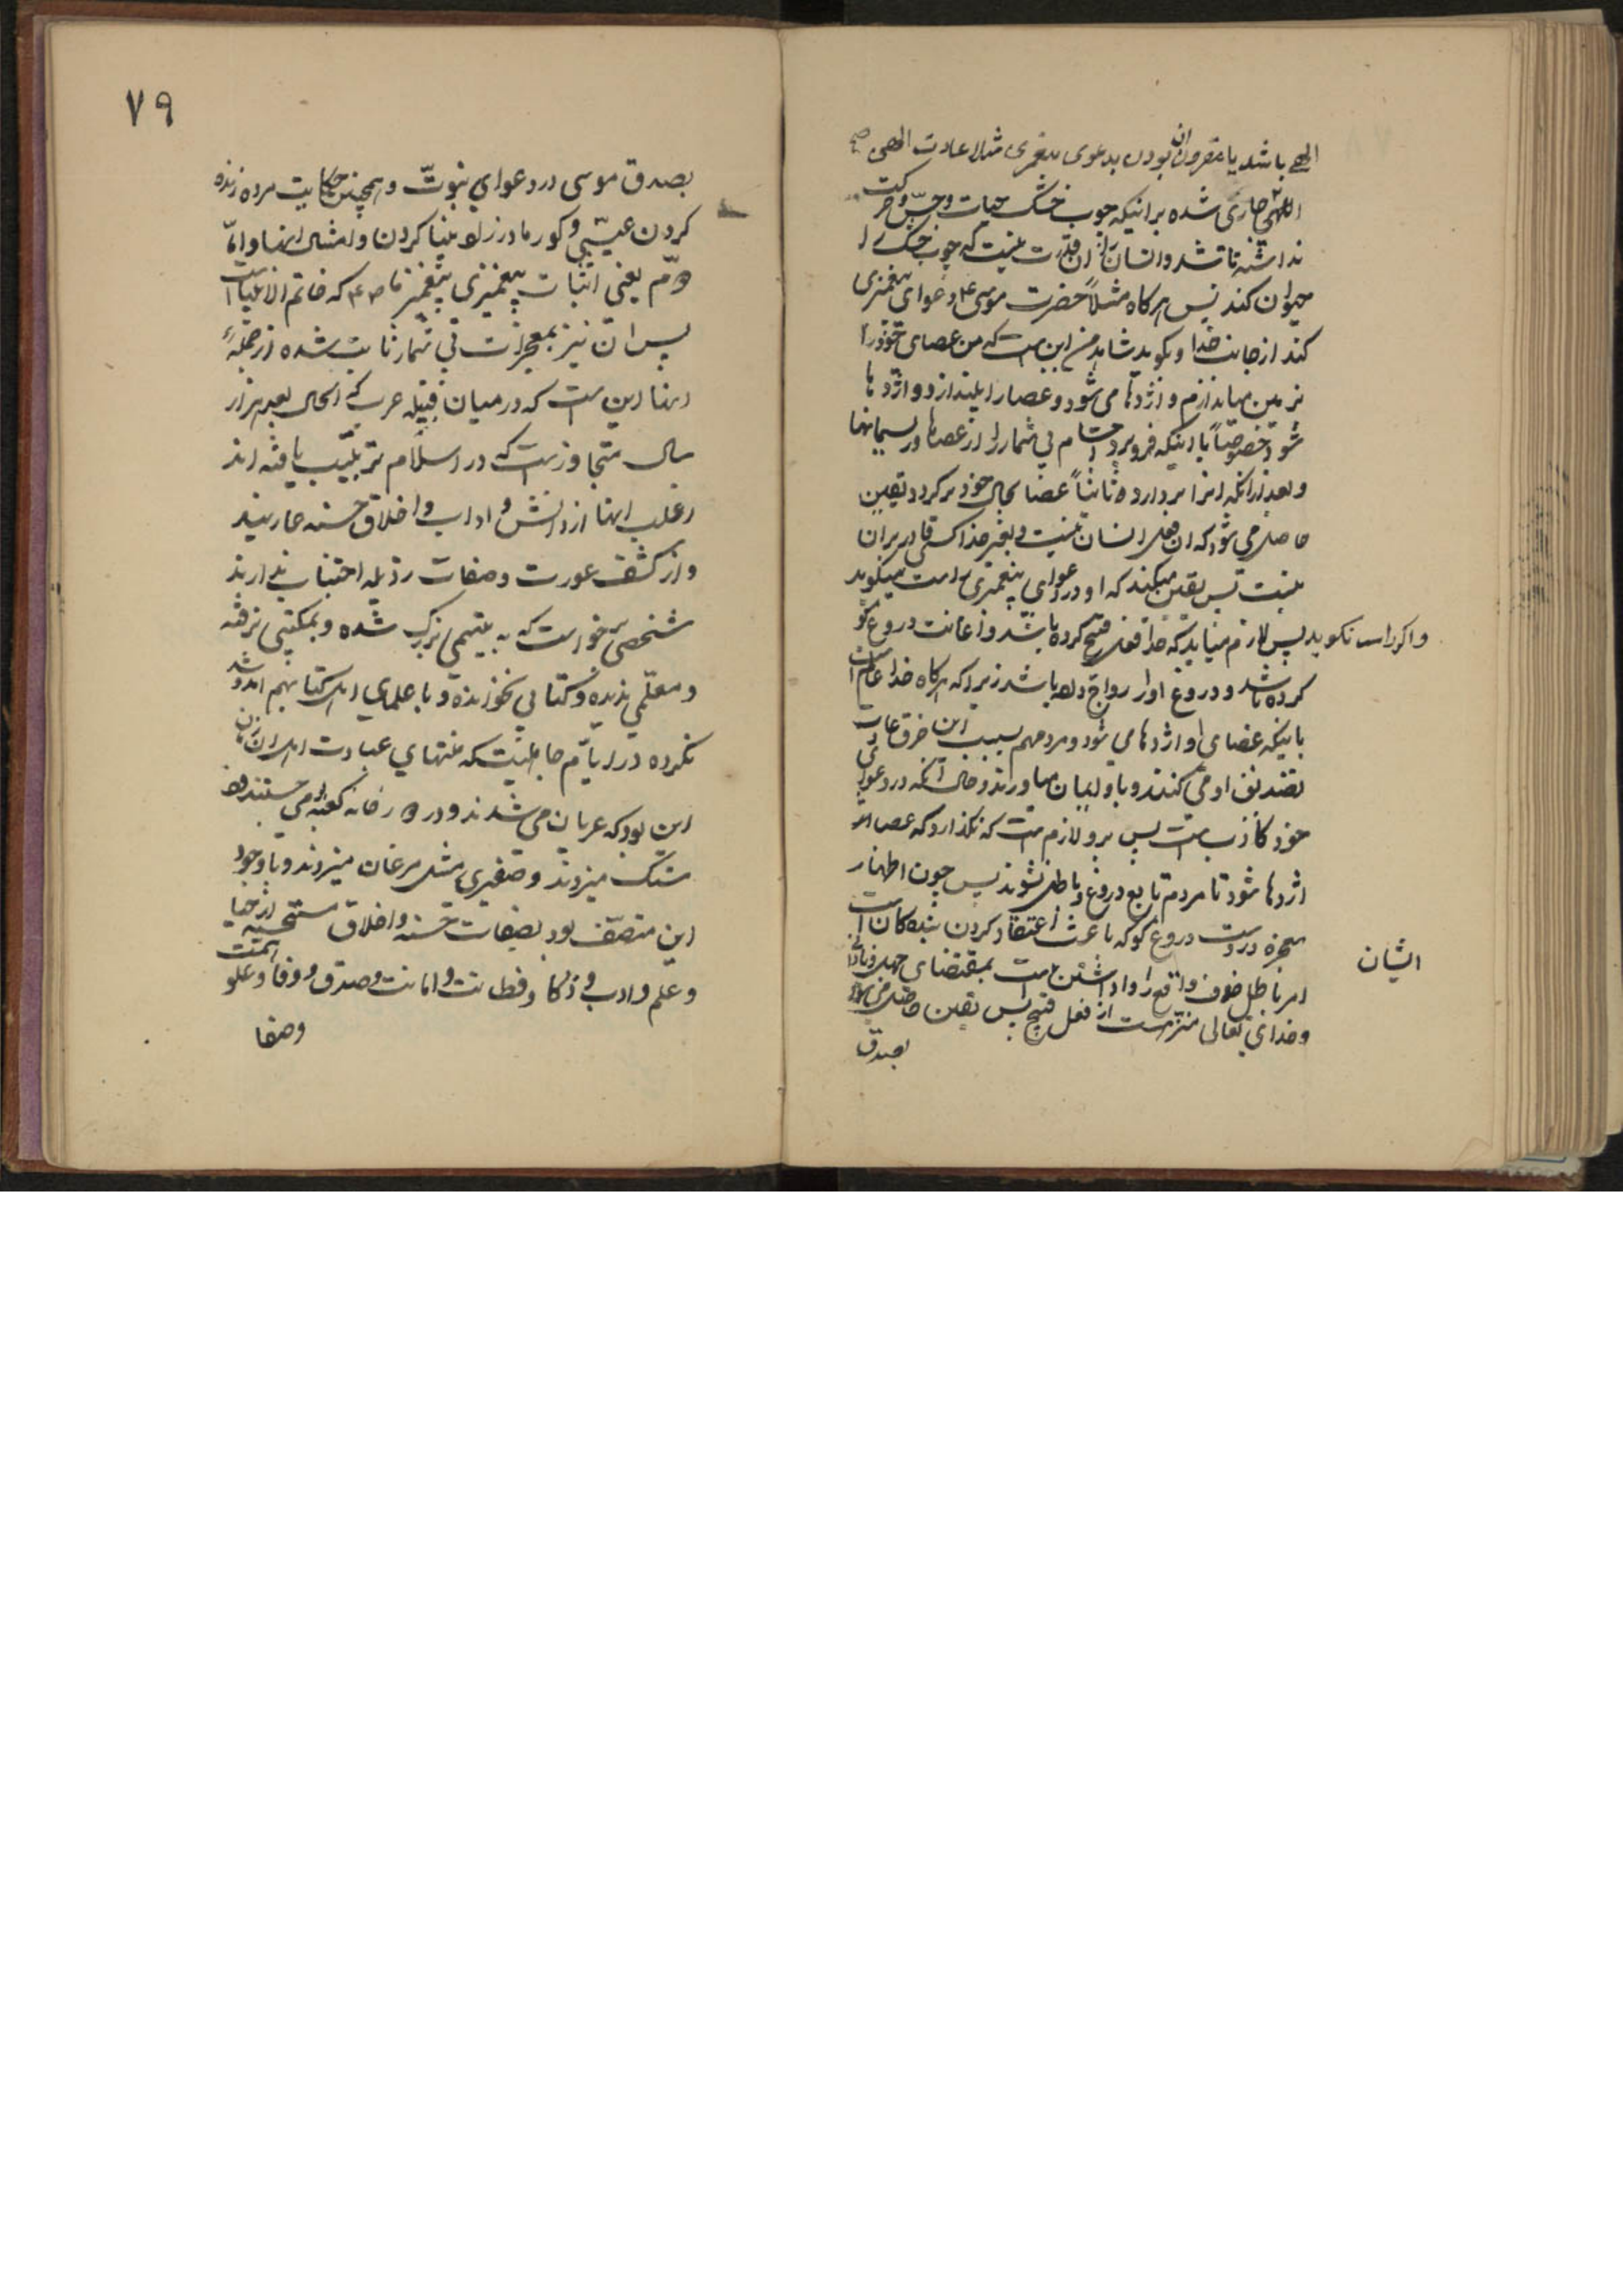 الهی باشد یا مقرون بودن بدعوی پیغمبری مثلا عادت الهی
اللهی جاری شده برانیکه چوب خشک حیات و حس و حرکت
نداشته باشد و انسان را ان قدرت نیست که چوب خشک را
حیوان کند پس هرکاه مثلاً حضرت موسی ع دعوای پیغمبری
کند از جانب خدا و بکوید شاهد من این است که من عصای خود را
بزمین میاندازم و اژدها می شود و عصا را بیندازد و اژدها
شود خصوصاً با اینکه فروبرد اجسام بی شمار را از عصاها و ریسمانها
و بعد ازانکه انرا بردارد ثانیاً عصا بحال خود برکردد یقین
حاصل می شود که ان فعل انسان نیست و بغیر خدا کسی قادر بران
نیست پس یقین میکند که او در دعوای پیغمبری راست میکوید
و اکر راست نکوید پس لازم میاید که خدا فعل قبیح کرده باشد و اعانت دروغ کو
کرده باشد و دروغ او را رواج داده باشد زیرا که هرکاه خدا عالم است
باینکه عصای او اژدها می شود و مردم هم بسبب این خرق عادت
تصدیق او می کنند و باو ایمان میاورند و حال آنکه در دعوای
خود کاذب است پس برو لازم است که نکذارد که عصا
اژدها شود تا مردم تابع دروغ و باطل نشوند پس چون اظهار
معجزه در دست دروغ کو که باعث اعتقاد کردن بنده کان است
ایشان
امر باطل خلاف واقع را وا داشتن است بمقتضای جهل و نادانی
و خدای تعالی منزه است از فعل قبیح پس یقین حاصل می شود
بصدق
۷۹
بصدق موسی در دعوای نبوّت و همچنین حکایت مرده زنده
کردن عیسی و کور مادرزاد بینا کردن و امثال اینها و امّا
دوّم یعنی اثبات پیغمبری پیغمبر ما ص که خاتم الانبیاست
پس ان نیز بمعجزات بی شمار ثابت شده از جمله
اینها این است که در میان قبیله عرب که الحال بعد هزار
سال متجاوز است که در اسلام تربیت یافته اند
اغلب اینها از دانش و اداب و اخلاق حسنه عاریند
و از کشف عورت و صفات رذیله اجتناب ندارند
شخصی برخواست که به یتیمی بزرک شده و بمکتبی نرفته
و معلّمی ندیده و کتابی نخوانده و با علمای اهل کتاب هم امد و شد
نکرده در ایّام جاهلیت که منتهای عبادت اهل ان زمان
این بود که عریان می شدند و در دور خانه کعبه می جستند و
سنک میزدند و صفیری مثل مرغان میزدند و با وجود
این متصّف بود بصفات حسنه و اخلاق مستحسنه از حیا
و علم و ادب و ذکا و فطانت و امانت و صدق و وفا و علو همّت
وصفا